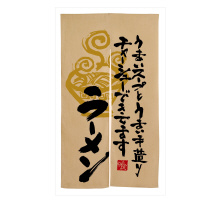 うまいスープとうまい手造り
チャーシューできてます
ラーメン